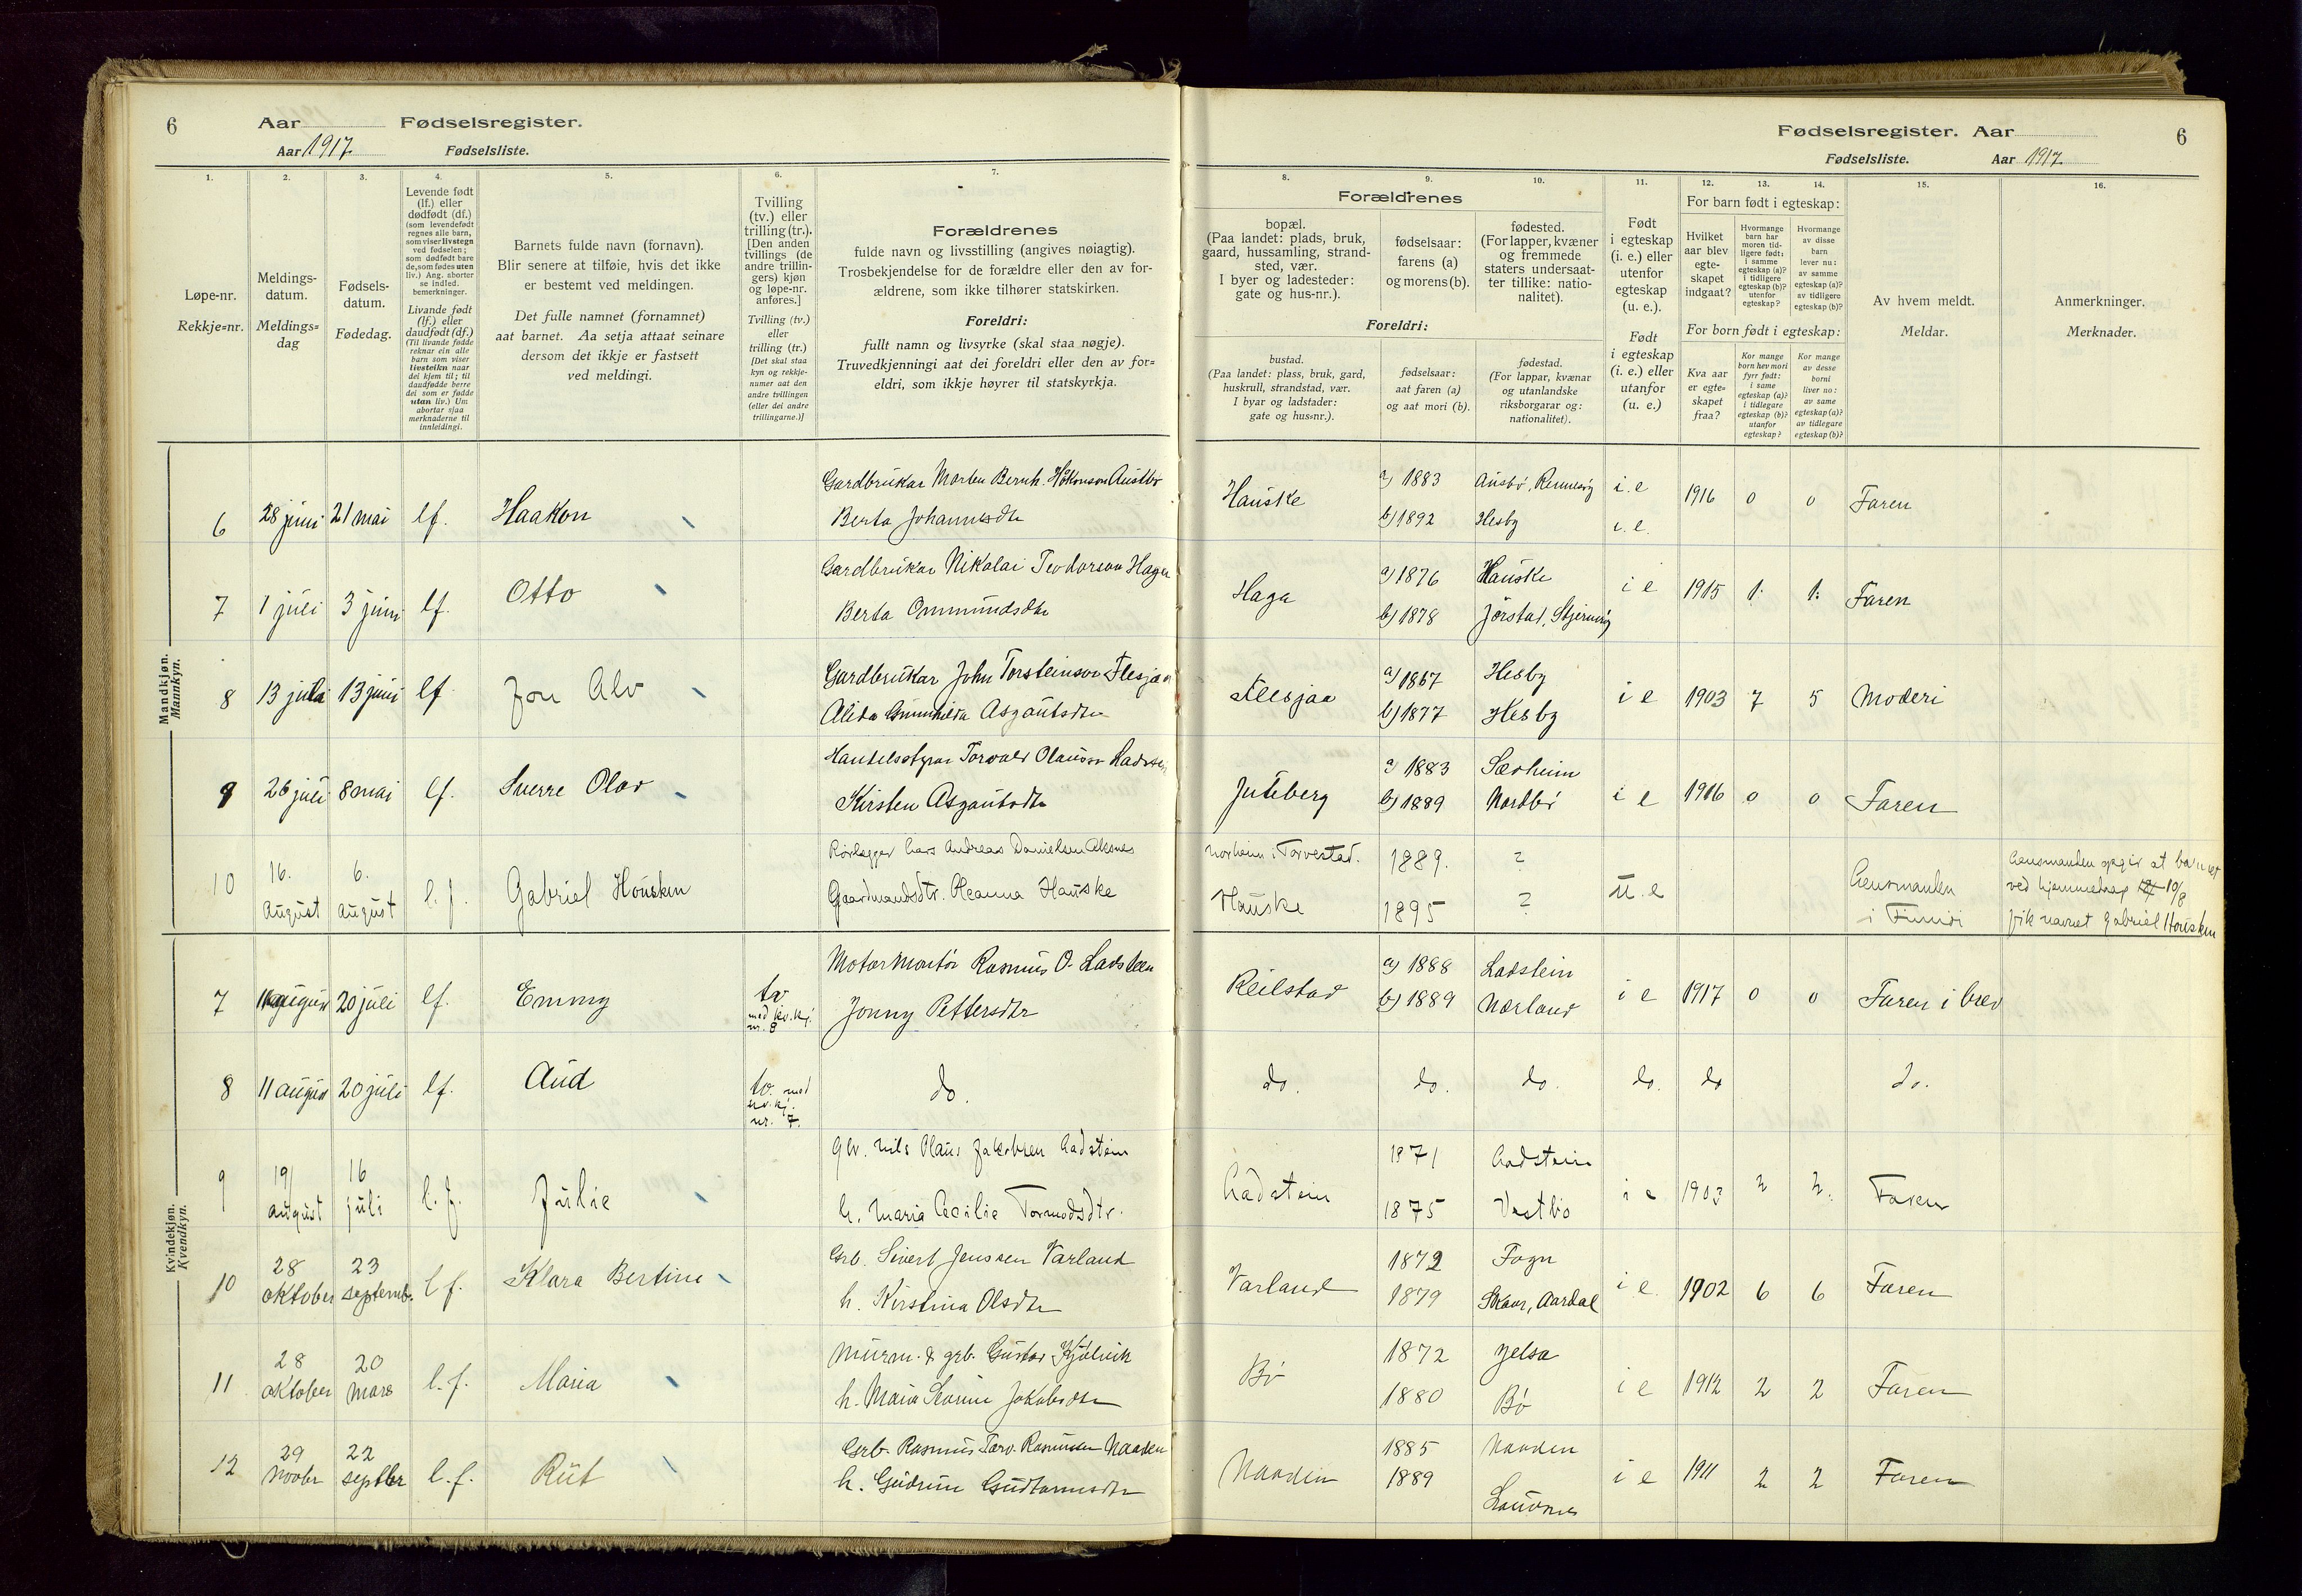 6 Aar Fødselsregister.
Aar 1917. Fødselsliste.
Fødselsregister. Aar 6
Fødselsliste. Aar 1917.
1. 2. 3. 4. 5. 6. 7.
Løpe-nr.
Rekkje=nr.
Meldings-
datum.
Meldings=
dag
Fødsels-
datum.
Fødedag.
Levende født
(lf.) eller
dødfødt (df.)
(som levendefødt
regnes alle barn,
som viser livstegn
ved fødselen;
som dødfødt bare
de, som fødes uten
liv.) Ang. aborter
se indled.
bemerkninger.
Livande født
(lf.) eller
daudfødt (df.)
(Til livande fødde
reknar ein alle
barn som viser
livsteikn naar
dei kjem til; til
daudfødde berre
dei som er fødde
utan liv.) Um
abortar sjaa
merknaderne til
innleidingi.
Barnets fulde navn (fornavn).
Blir senere at tilføie, hvis det ikke
er bestemt ved meldingen.
Det fulle namnet (fornamnet)
aat barnet. Aa setja attaat seinare
dersom det ikkje er fastsett
ved meldingi.
Tvilling
(tv.) eller
trilling (tr.).
[Den anden
tvillings (de
andre trillin-
gers) kjøn
og løpe-nr.
anføres.]
Tvilling (tv.)
eller
trilling (tr.)
[Det skal staa
kyn og rekkje-
numer aat den
andre tvillingen
(eller dei andre
trillingarne.)]
Forældrenes
fulde navn og livsstilling (angives nøiagtig).
Trosbekjendelse for de forældre eller den av for-
ældrene, som ikke tilhører statskirken.
Foreldri:
fullt namn og livsyrke (skal staa nøgje).
Truvedkjenningi aat dei foreldri eller den av for=
eldri, som ikkje høyrer til statskyrkja.
8. 9. 10. 11. 12. 13. 14. 15. 16.
Forældrenes
bopæl.
(Paa landet: plads, bruk,
gaard, hussamling, strand-
sted, vær.
I byer og ladesteder:
gate og hus-nr.).
fødselsaar:
farens (a)
og morens (b).
fødested.
(For lapper, kvæner
og fremmede
staters undersaat-
ter tillike: natio-
nalitet).
Foreldri:
bustad.
(Paa landet: plass, bruk, gard,
huskrull, strandstad, vær.
I byar og ladstader:
gate og hus=nr.).
fødselsaar:
aat faren (a)
og aat mori (b).
fødestad.
(For lappar, kvænar
og utanlandske
riksborgarar og:
nationalitet).
Født
i egteskap
(i. e.) eller
utenfor
egteskap
(u. e.).
Født
i egteskap
(i. e.) eller
utanfor
(u. e.)
For barn født i egteskap:
Hvilket
aar blev
egte-
skapet
indgaat?
Hvormange
barn har
moren tid-
ligere født:
i samme
egteskap (a)?
i tidligere
egteskap (b)?
utenfor
egteskap?
Hvormange
av disse
barn
lever nu:
av samme
egteskap (a)?
av tidligere
egteskap (b)?
For born født i egteskap:
Kva aar
er egte=
skapet
fraa?
Kor mange
born hev mori
fyrr født:
i same
egteskap (a)?
i tidlegare
egteskap (b)?
utanfor
egteskap?
Kor mange
av desse
borni
liver no:
av same
egteskap (a)?
av tidlegare
egteskap (b)?
Av hvem meldt.
Meldar.
Anmerkninger.
Merknader.
Mandkjøn.
Mannkyn.
6 28 juni 21 mai lf. Haakon Gardbrukar Morten Bernh. Håkonson Austbø
Berta Johannesdtr
Hauske a) 1883 Ausbø, Rennesøy i. e 1916 0 0 Faren
b) 1892 Hesby i. e.
7 1 juli 3 juni lf. Otto Gardbrukar Nikolai Teodorson Hagen
Berta Ommundsdtr
Haga a) 1876 Hauske i e 1915 1. 1. Faren
b) 1878 Jørstad, Stjernerøy
8 13 juli 13 juni lf. Jon Alv Gardbrukar John Torsteinson Flesjaa
Alida Gunnhilda Asgautsdtr
Flesjaa a) 1867 Hesby i e 1903 7 5 Moderi
b) 1877 Hesby
9 26 juli 8 mai lf. Sverre Olav Handelsstyrar Torvald Olauson
Kirsten Asgautsdtr
Juteberg a) 1883 Særheim i e 1916 0 0 Faren
b) 1889 Nordbø
10 16. august 6. august l. f. Gabriel Housken Rørlegger Lars Andreas Danielsen Aksnes
Gaardmandsdtr. Oleanna Hauske
Norheim i Torvestad. 1889. ? u. e Lensmanden
Hauske 1895 ? i Finnøi
Lensmanden opgir at barnet
ved hjemmedaap 10/8
fik navnet Gabriel Housken
Kvindekjøn.
Kvendkyn.
7 11 august 20 juli lf. Emmy tv
med kv.kj.
nr. 8
Motormontør Rasmus O. Ladstein
Jonny Pettersdtr
Reilstad a) 1888 Ladstein i e 1917 0 0 Faren i brev
b) 1889 Nærland
8 11 august 20 juli lf. Aud tv. med
kv. kj.
nr. 7.
do. do. do. do. do. do do.
9 19/ august 16 juli l. f. Julie gbr. Nils Olaus Jakobsen Ladstein
h. Maria Cecilie Tormodsdtr.
Ladstein 1871 Ladstein i e 1903 2 2. Faren
1875 Vestbø
10 28 oktober 23 septemb. l f. Klara Bertine Grb. Sivert Jenssen Varland
h. Kirstina Olsdtr
Varland 1872 Fogn i e 1902 6 6 Faren
1879 Skaar, Aardal
11 28 oktober 20 mars l. f. Maria Murm. & grb. Gustav Kjølvik
h. Maria Jakobsdtr
Bø 1872 Jelsa i e 1912 2 2 Faren
1880 Bø
12 29 novbr 22 septbr l. f. Rut Grb. Rasmus Torv. Rasmussen Naaden
h. Gudrun Gudtormsdtr
Naaden 1885 Naaden i e 1911 2 2 Faren
1889